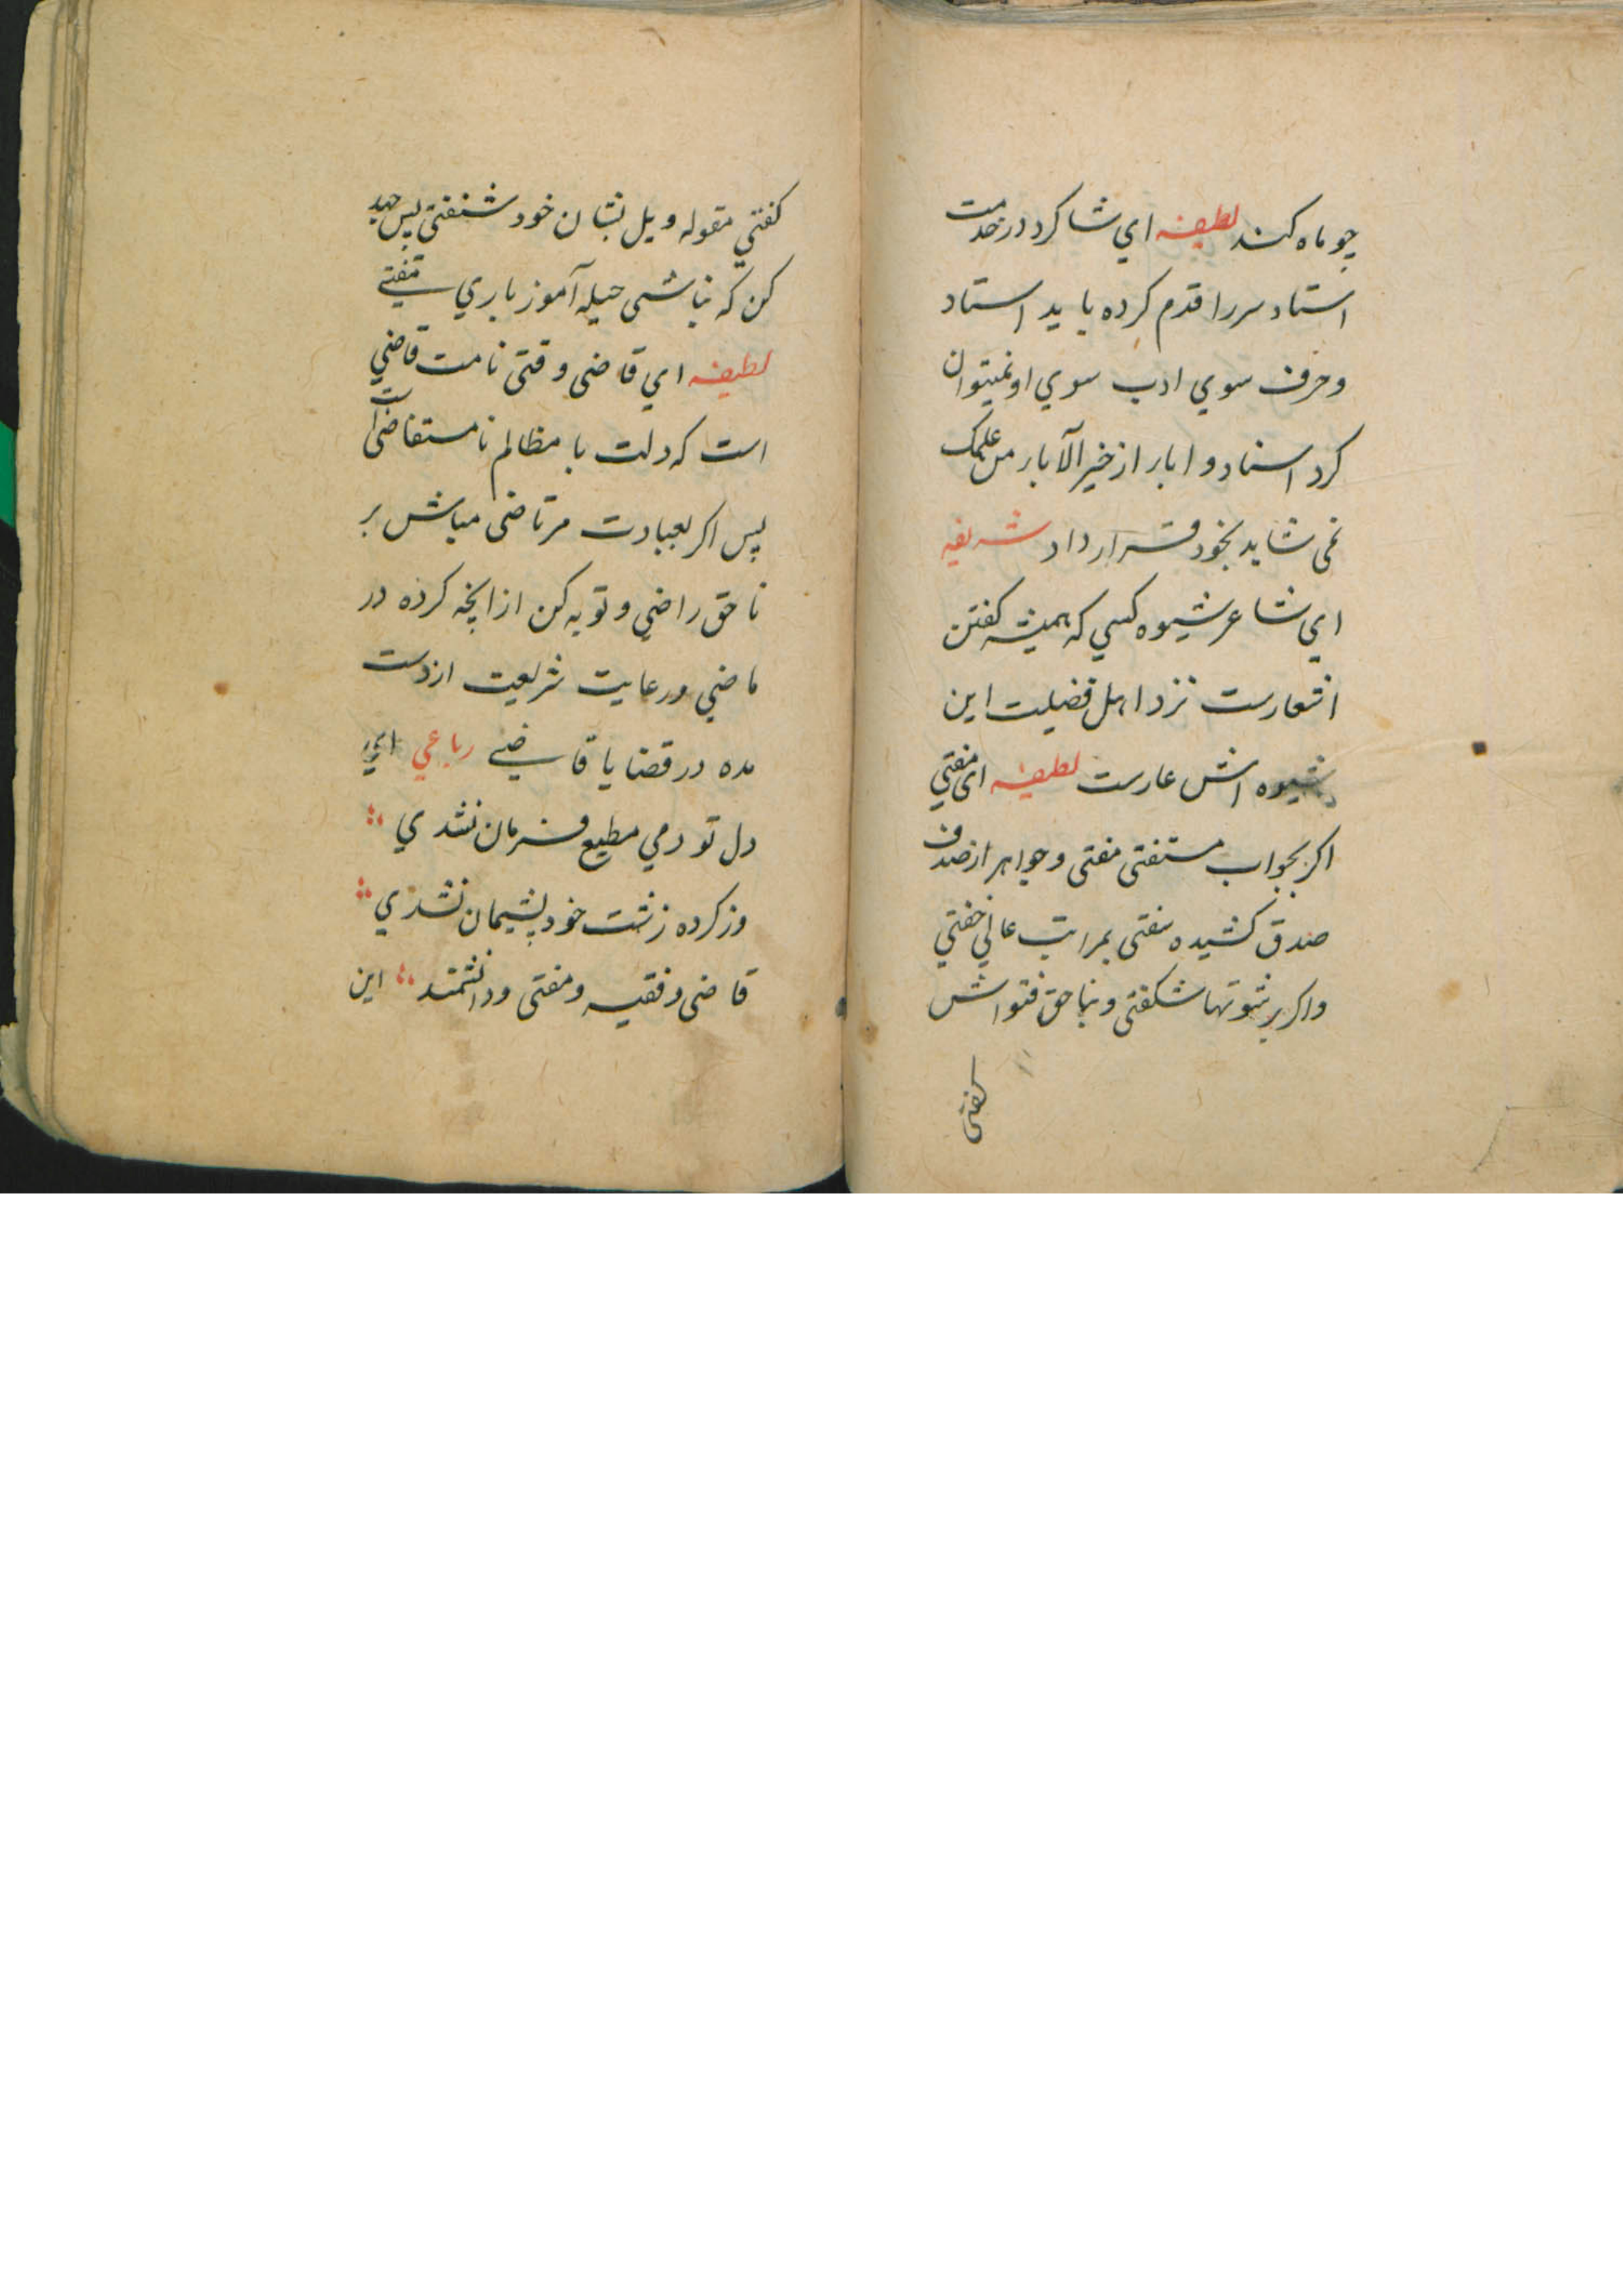 چو ماه کند لطیفه اي شاکرد در خدمت
استاد سر را قدم کرده باید استاد
و حرف سوي ادب سوي او نمیتوان
کرد اسناد و ابار از خیر الآبار من علمک
نمی شاید بخود قرار داد شریفه
اي شاعر شیوه کسي که همیشه کفتن
اشعارست نزد اهل فضیلت این
شیوه اش عارست لطیفه ای مفتي
اکر بجواب مستفتی مفتی و جواهر از صدف
صدق کشیده سفتی بمراتب عالي خفتي
و اکر برشوتها شکفتی و بناحق فتواش
کفتی
کفتي مقوله ویل بشان خود شنفتي پس جهد
کن که نباشی حیله آموز باري مفتے
لطیفه اي قاضی وقتی نامت قاضي
است که دلت با مظالم نامستقاضی است
پس اکر بعبادت مرتاضی مباش بر
ناحق راضي و توبه کن از انچه کرده در
ماضي و رعایت شریعت از دست
مده در قضایا قاضے رباعي اي
دل تو دمي مطیع فرمان نشدي
وز کرده زشت خود پشیمان نشدي
قاضی و فقیه و مفتی و دانشمند این